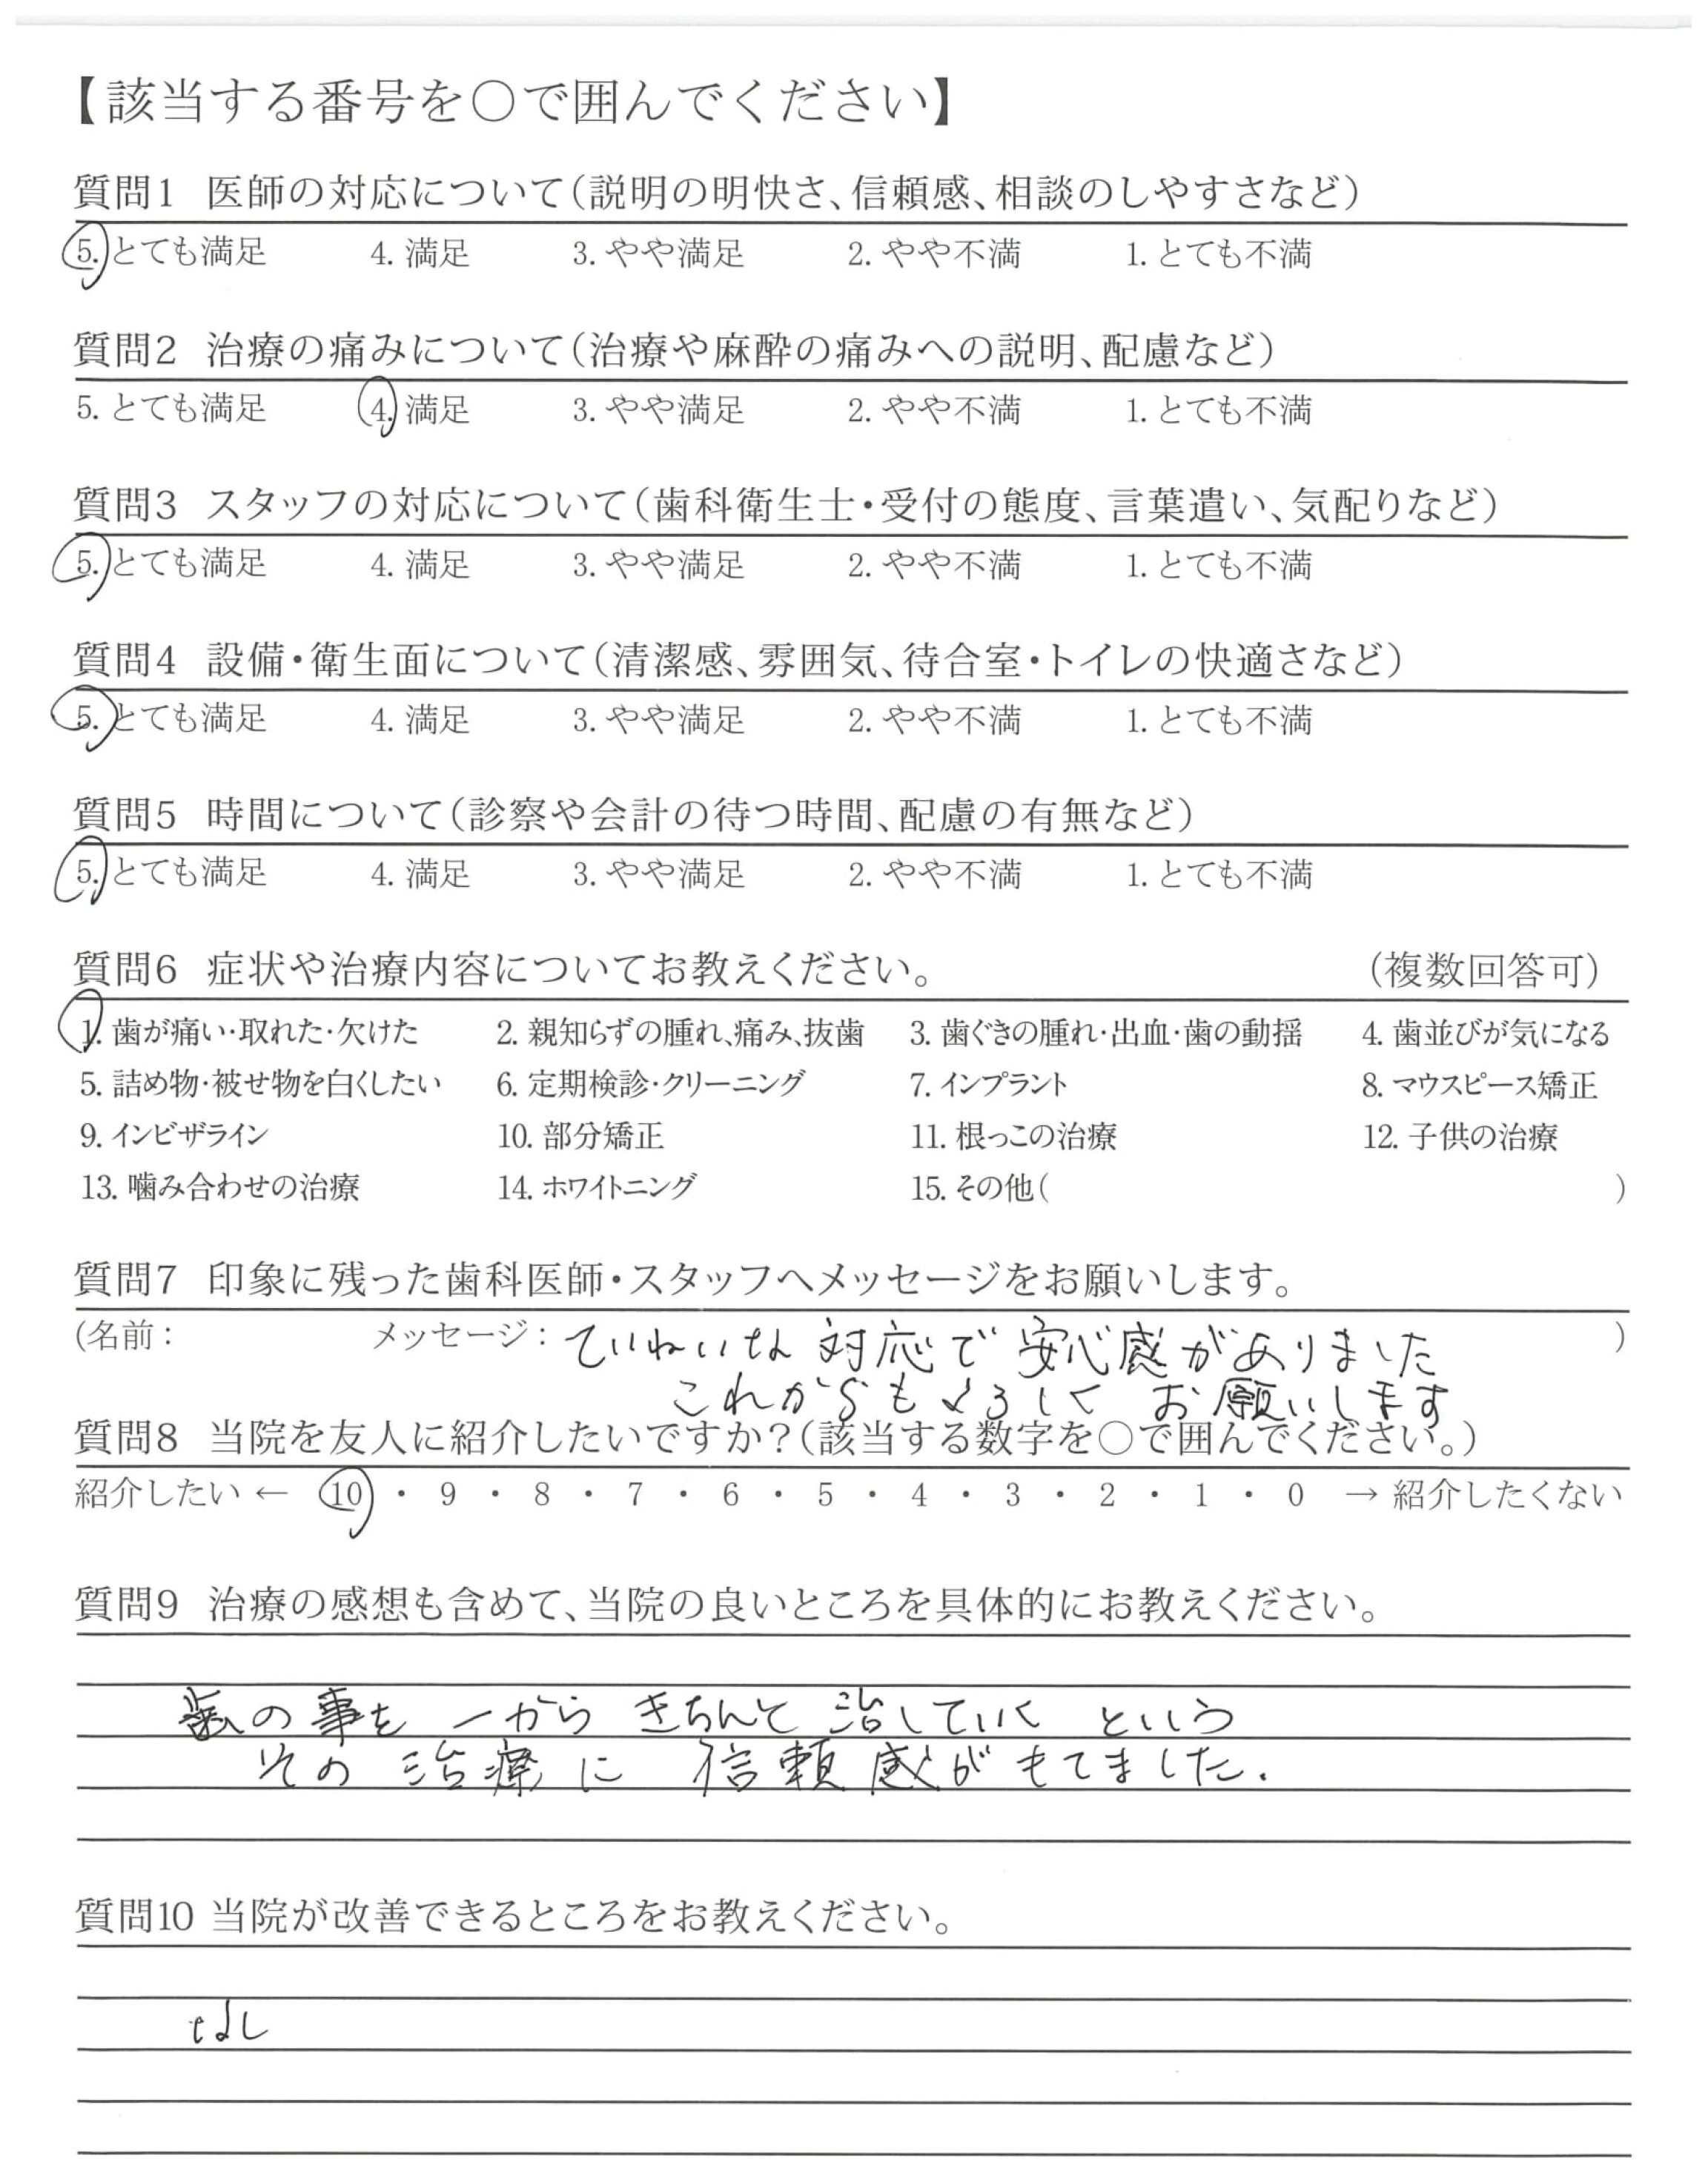 【該当する番号を○で囲んでください】
質問1 医師の対応について（説明の明快さ、信頼感、相談のしやすさなど）
5. とても満足 4. 満足 3. やや満足 2. やや不満 1. とても不満
質問2 治療の痛みについて（治療や麻酔の痛みへの説明、配慮など）
5. とても満足 4. 満足 3. やや満足 2. やや不満 1. とても不満
質問3 スタッフの対応について（歯科衛生士・受付の態度、言葉遣い、気配りなど）
5. とても満足 4. 満足 3. やや満足 2. やや不満 1. とても不満
質問4 設備・衛生面について（清潔感、雰囲気、待合室・トイレの快適さなど）
5. とても満足 4. 満足 3. やや満足 2. やや不満 1. とても不満
質問5 時間について（診察や会計の待つ時間、配慮の有無など）
5. とても満足 4. 満足 3. やや満足 2. やや不満 1. とても不満
質問6 症状や治療内容についてお教えください。 （複数回答可）
1. 歯が痛い・取れた・欠けた 2. 親知らずの腫れ、痛み、抜歯 3. 歯ぐきの腫れ・出血・歯の動揺 4. 歯並びが気になる
5. 詰め物・被せ物を白くしたい 6. 定期検診・クリーニング 7. インプラント 8. マウスピース矯正
9. インビザライン 10. 部分矯正 11. 根っこの治療 12. 子供の治療
13. 噛み合わせの治療 14. ホワイトニング 15. その他（ ）
質問7 印象に残った歯科医師・スタッフへメッセージをお願いします。
（名前： メッセージ：ていねいな対応で安心感がありました ）
これからもよろしくお願いします
質問8 当院を友人に紹介したいですか？（該当する数字を○で囲んでください。）
紹介したい ← 10 ・ 9 ・ 8 ・ 7 ・ 6 ・ 5 ・ 4 ・ 3 ・ 2 ・ 1 ・ 0 → 紹介したくない
質問9 治療の感想も含めて、当院の良いところを具体的にお教えください。
歯の事を一からきちんと治していくという
その治療に信頼感がもてました.
質問10 当院が改善できるところをお教えください。
なし